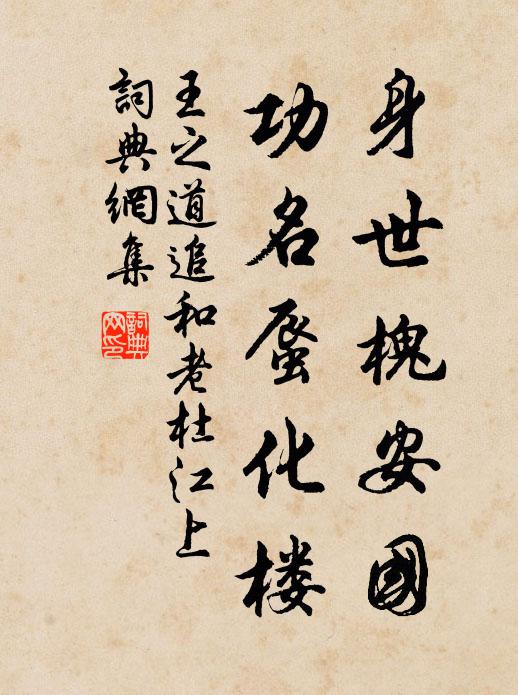 身世槐安國
功名蜃化楼
王之道追和老杜江上
詞典網集
詞典网印